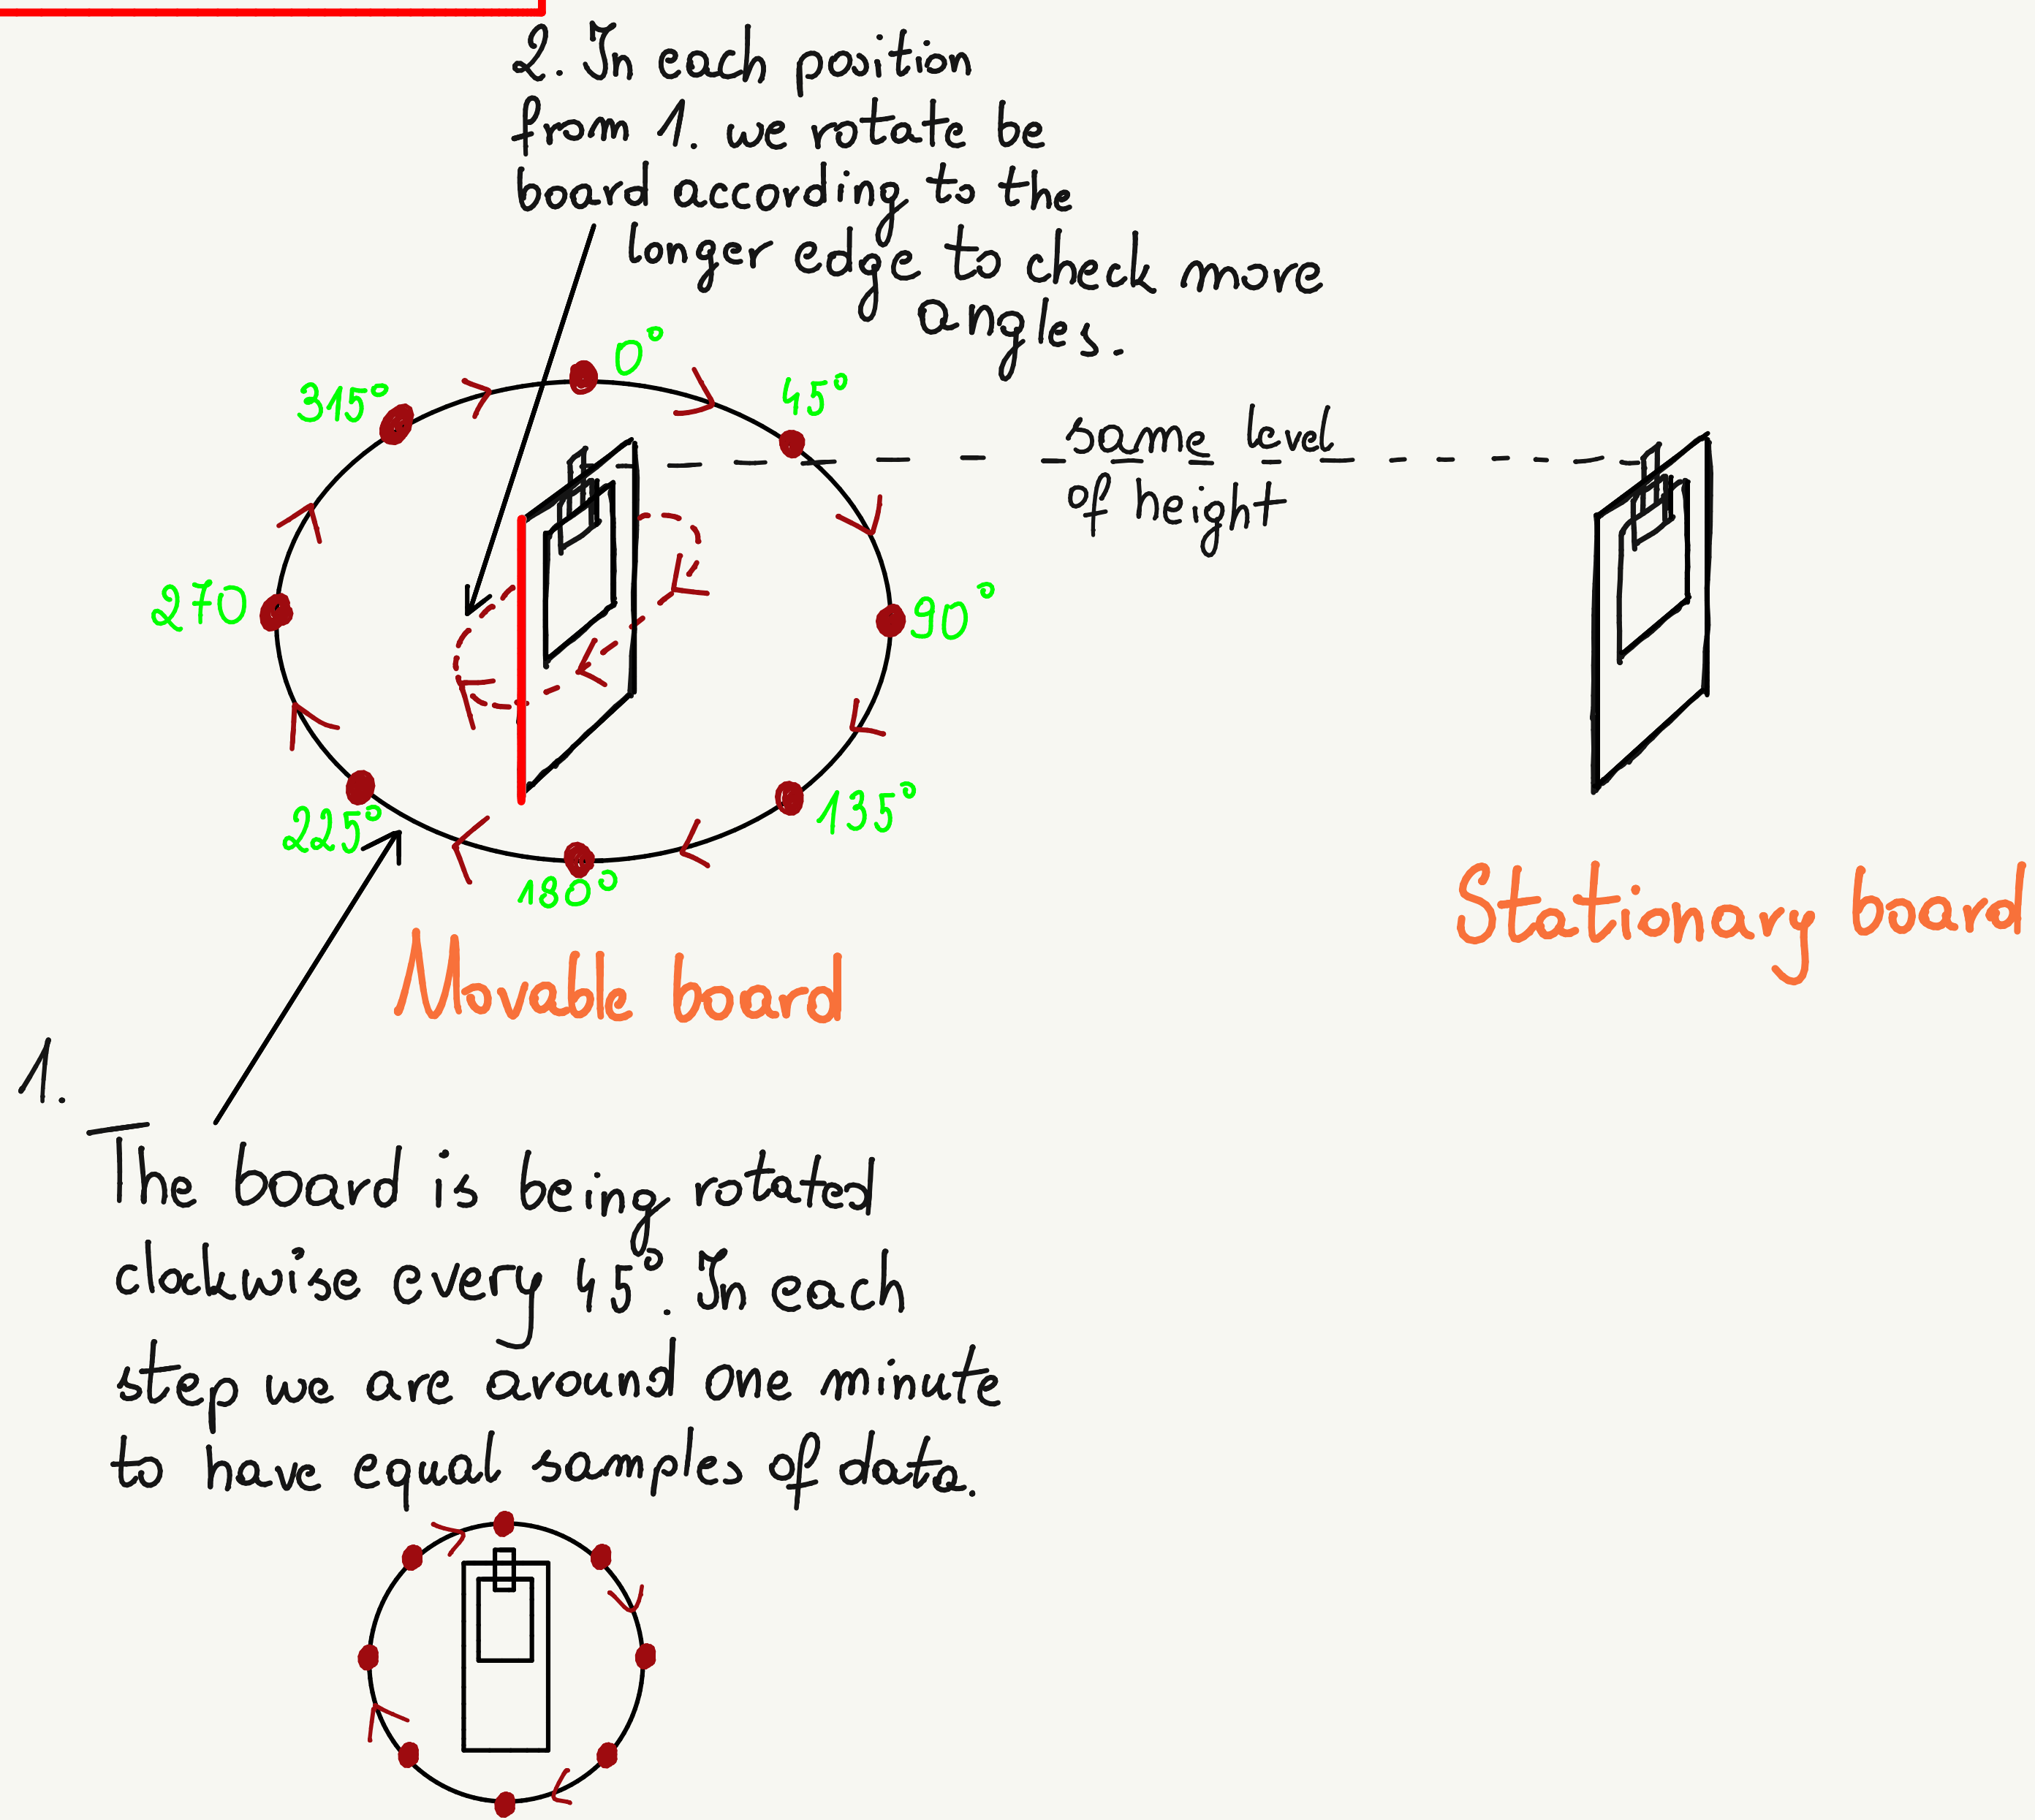 2. In each position
from 1. we rotate be
board according to the
longer edge to check more
angles.
0°
315°
45°
same level
of height
270
90°
225°
135°
180°
Stationary board
Movable board
1.
The board is being rotated
clockwise every 45°. In each
step we are around one minute
to have equal samples of data.